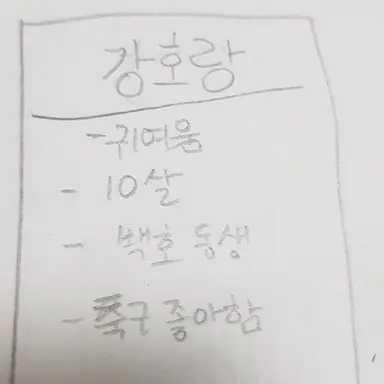 강호랑
- 귀여움
- 10살
- 백호 동생
- 축구 좋아함